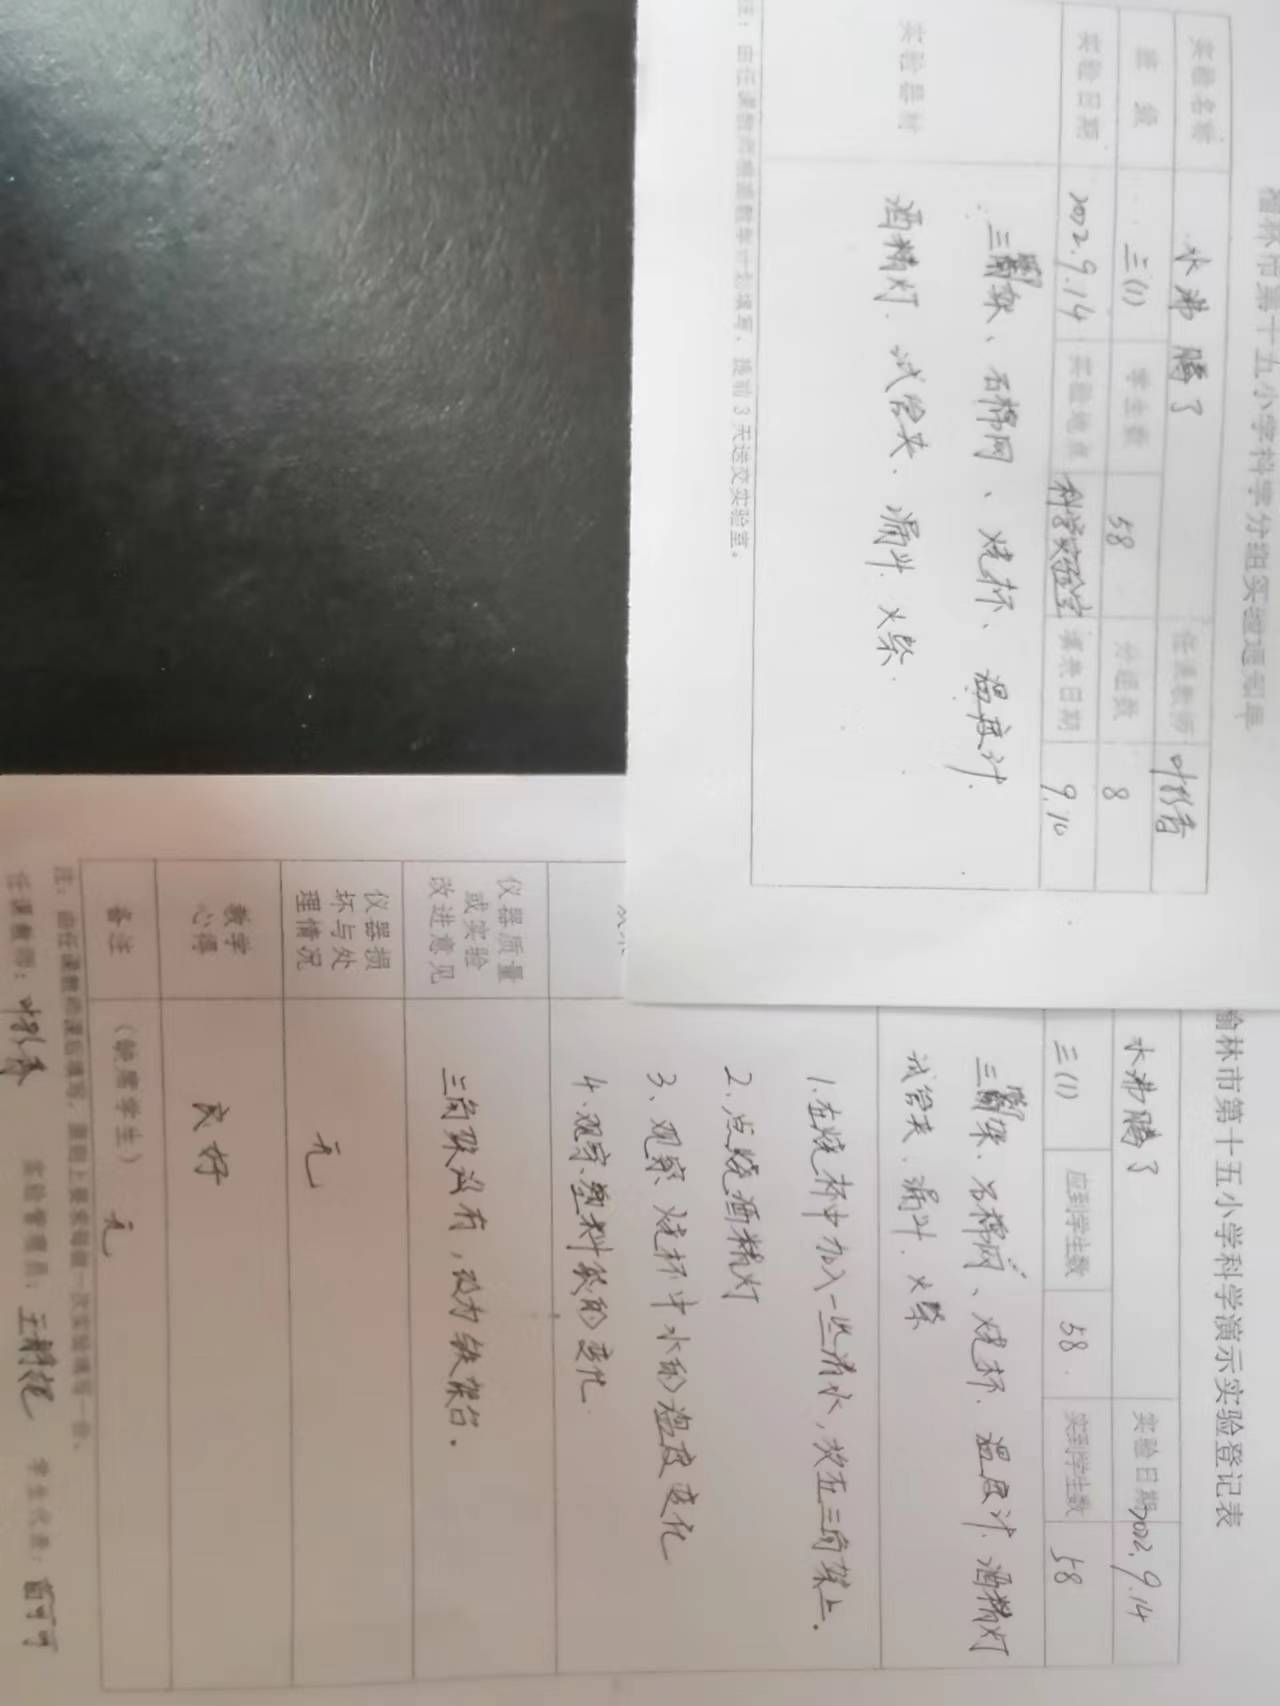 榆林市第十五小学科学分组实验通知单
实验名称 水沸腾了 任课教师
班级 三(1) 学生数 58 分组数 8
实验日期 2022.9.14 实验地点 科学实验室 填表日期 9.10
实验器材
三脚架、石棉网、烧杯、温度计.
酒精灯、试管夹、漏斗.火柴.
注：由任课教师根据教学计划填写，提前3天送交实验室。
榆林市第十五小学科学演示实验登记表
水沸腾了 实验日期 2022.9.14
三(1) 应到学生数 58. 实到学生数 58
三脚架、石棉网、烧杯.温度计.酒精灯
试管夹、漏斗.火柴
1.在烧杯中加入一些清水，放在三角架上.
2、点烧酒精灯
3、观察烧杯中水的温度变化
4、观察塑料袋的变化.
仪器质量
或实验
改进意见
三角架没有，改为铁架台.
仪器损
坏与处
理情况
无
教学
心得
良好
备注 （缺席学生） 无
注：由任课教师课后填写，原则上要求每做一次实验填写一份。
任课教师： 实验管理员： 学生代表：